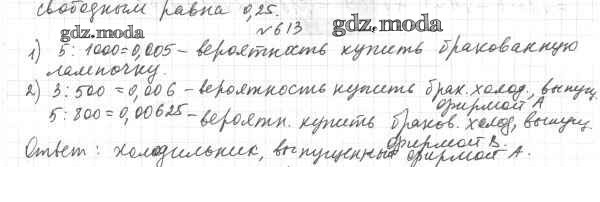 свободным равна 0,25.
№613
gdz.moda
gdz.moda
1) 5 : 1000 = 0,005 – вероятность купить бракованную
лампочку.
2) 3 : 500 = 0,006 – вероятность купить брак. холод., выпущ.
фирмой А
5 : 800 = 0,00625 – вероятн. купить браков. холод, выпущ.
фирмой В.
Ответ : холодильник, выпущенный фирмой А.